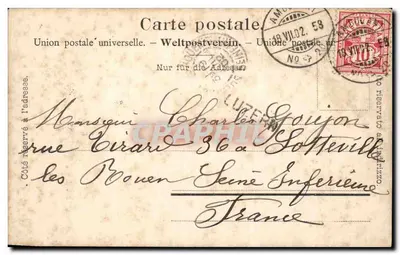 Carte postale.
Union postale universelle. — Weltpostverein. — Unione postale
Nur für die Adresse
AMBULANT
18.VII.02. 58
No
10
LUZERN
Côté réservé à l'adresse.
Monsieur Charles Goujon
rue Erard 36a Sotteville
les Rouen Seine Inférieure
France